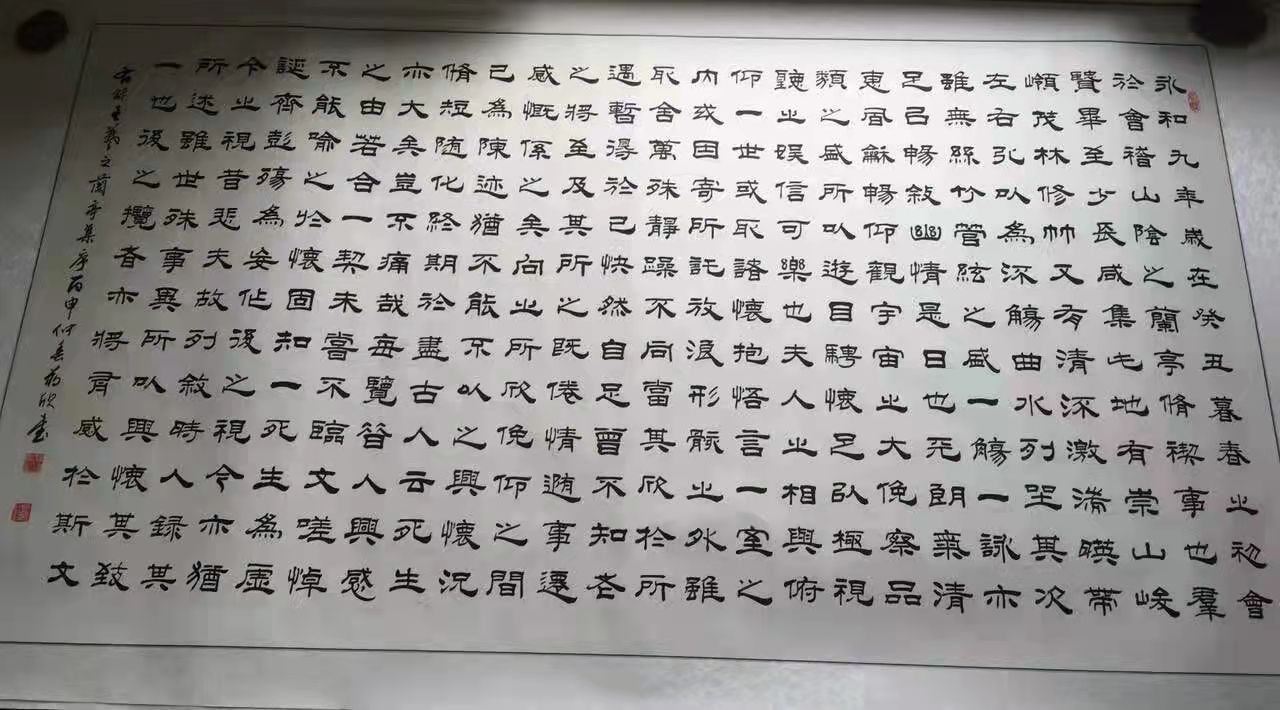 永和九年歲在癸丑暮春之初會
於會稽山陰之蘭亭脩禊事也羣
賢畢至少長咸集此地有崇山峻
嶺茂林修竹又有清流激湍暎帶
左右引以為流觴曲水列坐其次
雖無絲竹管絃之盛一觴一詠亦
足以暢敘幽情是日也天朗氣清
惠風龢暢仰觀宇宙之大俛察品
類之盛所以遊目騁懷足以極視
聽之娛信可樂也夫人之相與俯
仰一世或取諸懷抱悟言一室之
內或因寄所託放浪形骸之外雖
取舍萬殊靜躁不同當其欣於所
遇暫得於己快然自足曾不知老
之將至及其所之既倦情隨事遷
感慨係之矣向之所欣俛仰之間
已為陳迹猶不能不以之興懷況
脩短隨化終期於盡古人云死生
亦大矣豈不痛哉每覽昔人興感
之由若合一契未嘗不臨文嗟悼
不能喻之於懷固知一死生為虛
誕齊彭殤為妄作後之視今亦猶
今之視昔悲夫故列敘時人録其
所述雖世殊事異所以興懷其致
一也後之攬者亦將有感於斯文
右錄王羲之蘭亭集序丙申何欣書